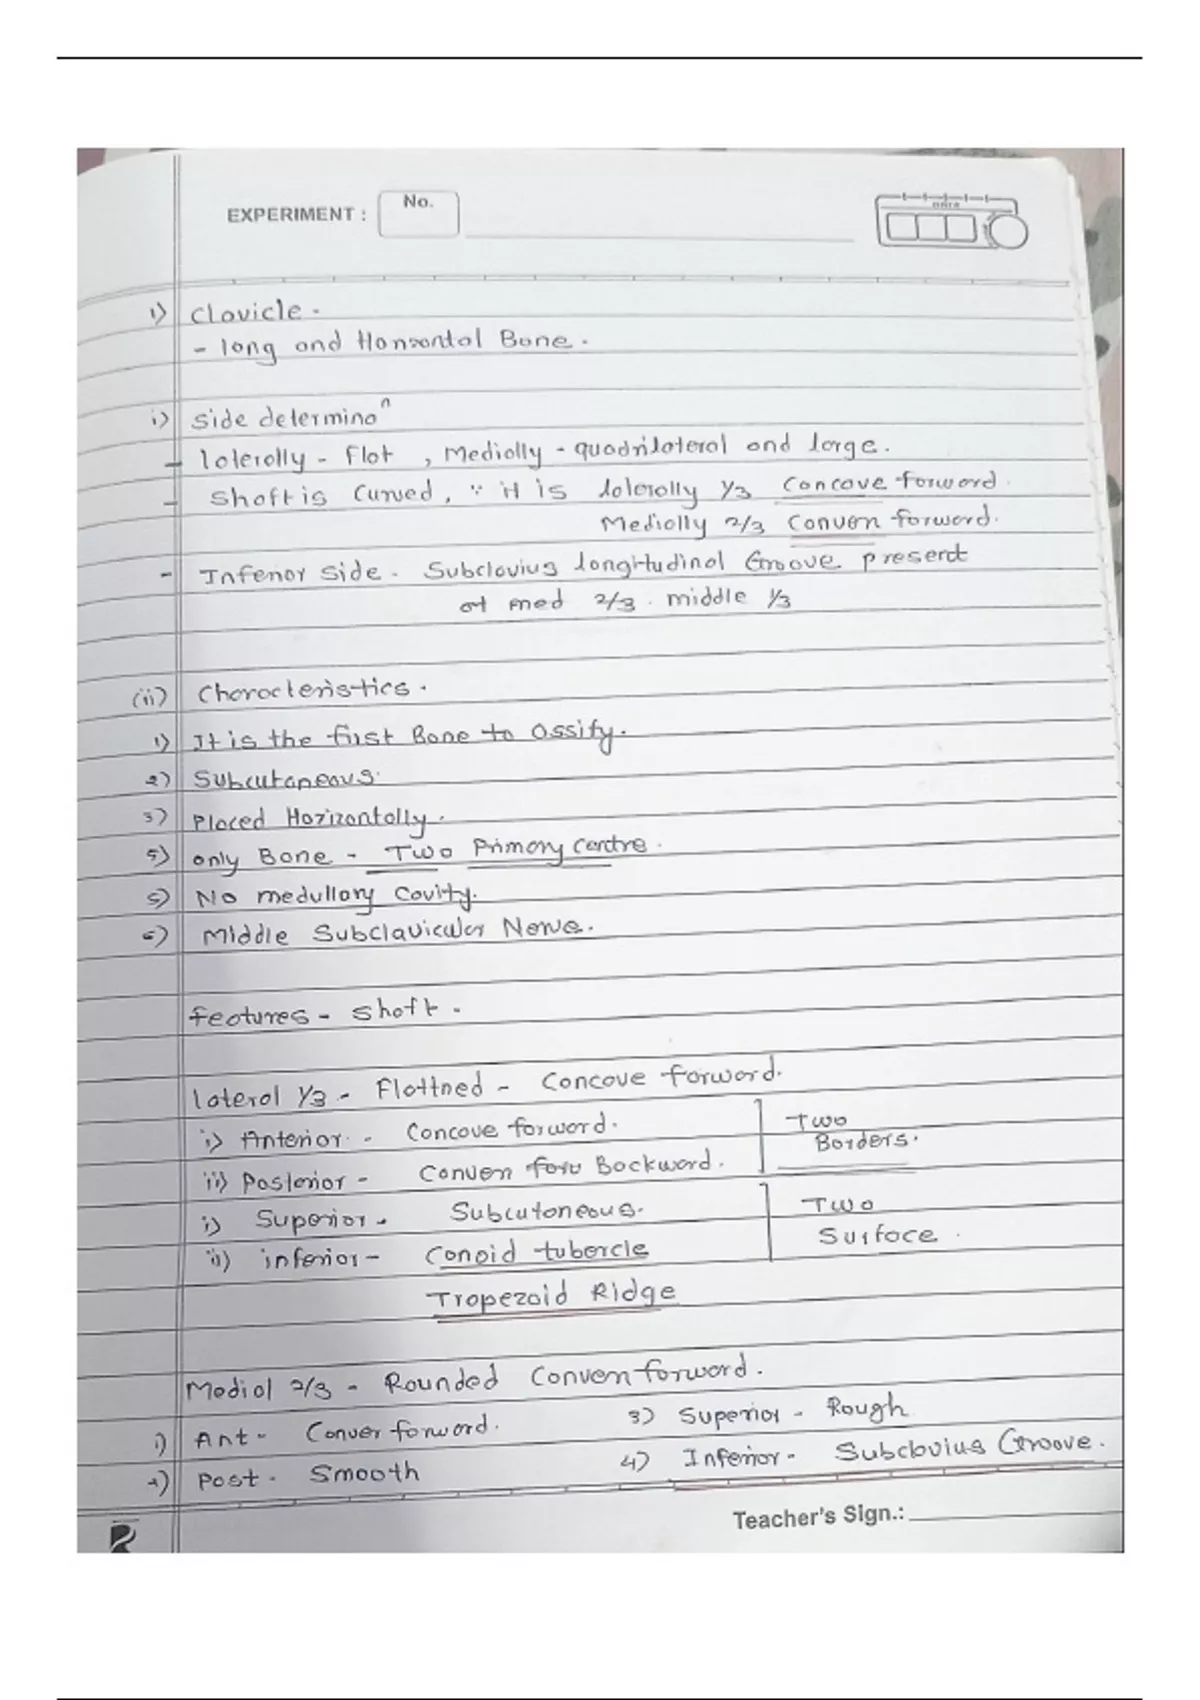 EXPERIMENT :
No.
DATE
1) Clavicle.
- long and Horizontal Bone.
i) Side determinaⁿ
- laterally - Flat , Medially - quadrilateral and large.
- Shaft is Curved, ∵ it is laterally 1/3 Concave forward.
Medially 2/3 Convex forward.
- Inferior Side - Subclavius longitudinal Groove present
at med 2/3 . middle 1/3
(ii) Characteristics.
1) It is the first Bone to Ossify.
2) Subcutaneous.
3) Placed Horizontally.
5) only Bone - Two Primary Centre.
5) No medullary Cavity.
6) Middle Subclavicular Nerve.
features - Shaft.
lateral 1/3 - Flattned - Concave forward.
i) Anterior - Concave forward.
Two
Borders.
ii) Posterior - Convex Backward.
i) Superior - Subcutaneous.
Two
Surface.
ii) inferior - Conoid tubercle
Trapezoid Ridge
Medial 2/3 - Rounded Convex forward.
i) Ant - Convex forward.
3) Superior - Rough
2) Post - Smooth
4) Inferior - Subclavius Groove.
Teacher's Sign.: